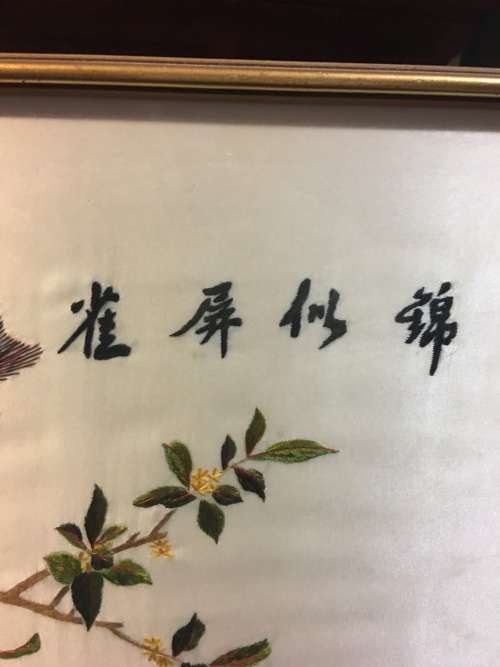 雀屏似錦